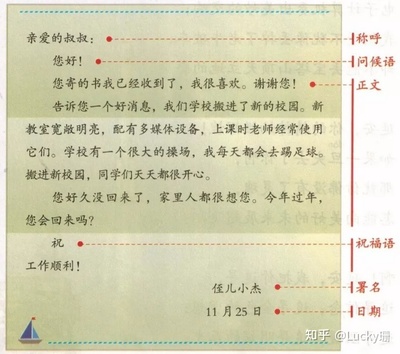 亲爱的叔叔：
称呼
您好！
问候语
您寄的书我已经收到了，我很喜欢。谢谢您！
正文
告诉您一个好消息，我们学校搬进了新的校园。新
教室宽敞明亮，配有多媒体设备，上课时老师经常使用
它们。学校有一个很大的操场，我每天都会去踢足球。
搬进新校园，同学们天天都很开心。
您好久没回来了，家里人都很想您。今年过年，
您会回来吗？
祝
祝福语
工作顺利！
侄儿小杰
署名
11月25日
日期
知乎 @Lucky珊